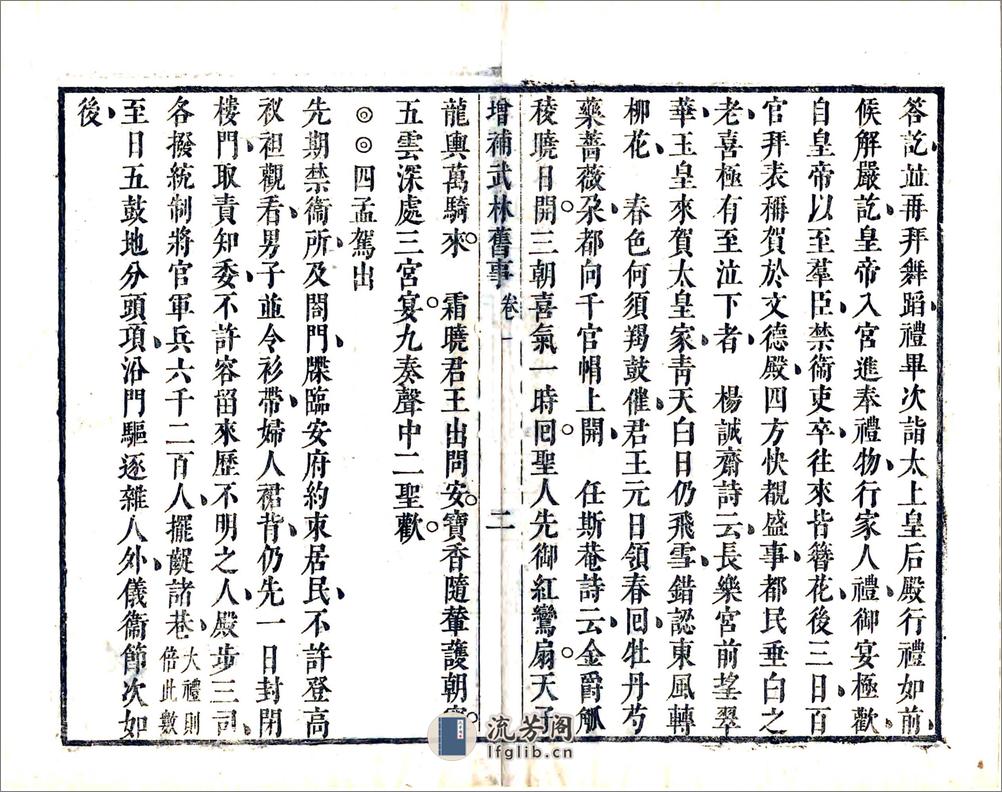 答訖並再拜舞蹈禮畢次詣太上皇后殿行禮如前
候解嚴訖皇帝入宮進奉禮物行家人禮御宴極歡
自皇帝以至羣臣禁衛吏卒往來皆簪花後三日百
官拜表稱賀於文德殿四方快覩盛事都民垂白之
老喜極有至泣下者 楊誠齋詩云長樂宮前望翠
華玉皇來賀太皇家靑天白日仍飛雪錯認東風轉
柳花 春色何須羯鼓催君王元日領春囘牡丹芍
藥薔薇朶都向千官帽上開 任斯菴詩云金爵觚
稜曉日開三朝喜氣一時囘聖人先御紅鸞扇天子
增補武林舊事 卷一 二
龍輿萬騎來 霜曉君王出問安寶香隨輦護朝
五雲深處三宮宴九奏聲中二聖歡
◎◎四孟駕出
先期禁衛所及閤門牒臨安府約束居民不許登高
衩袒觀看男子並令衫帶婦人裙背仍先一日封閉
樓門取責知委不許容留來歷不明之人殿步三司
各撥統制將官軍兵六千二百人擺齪諸巷大禮則倍此數
至日五鼓地分頭項沿門驅逐雜人外儀衛節次如
後
流芳阁
lfglib.cn